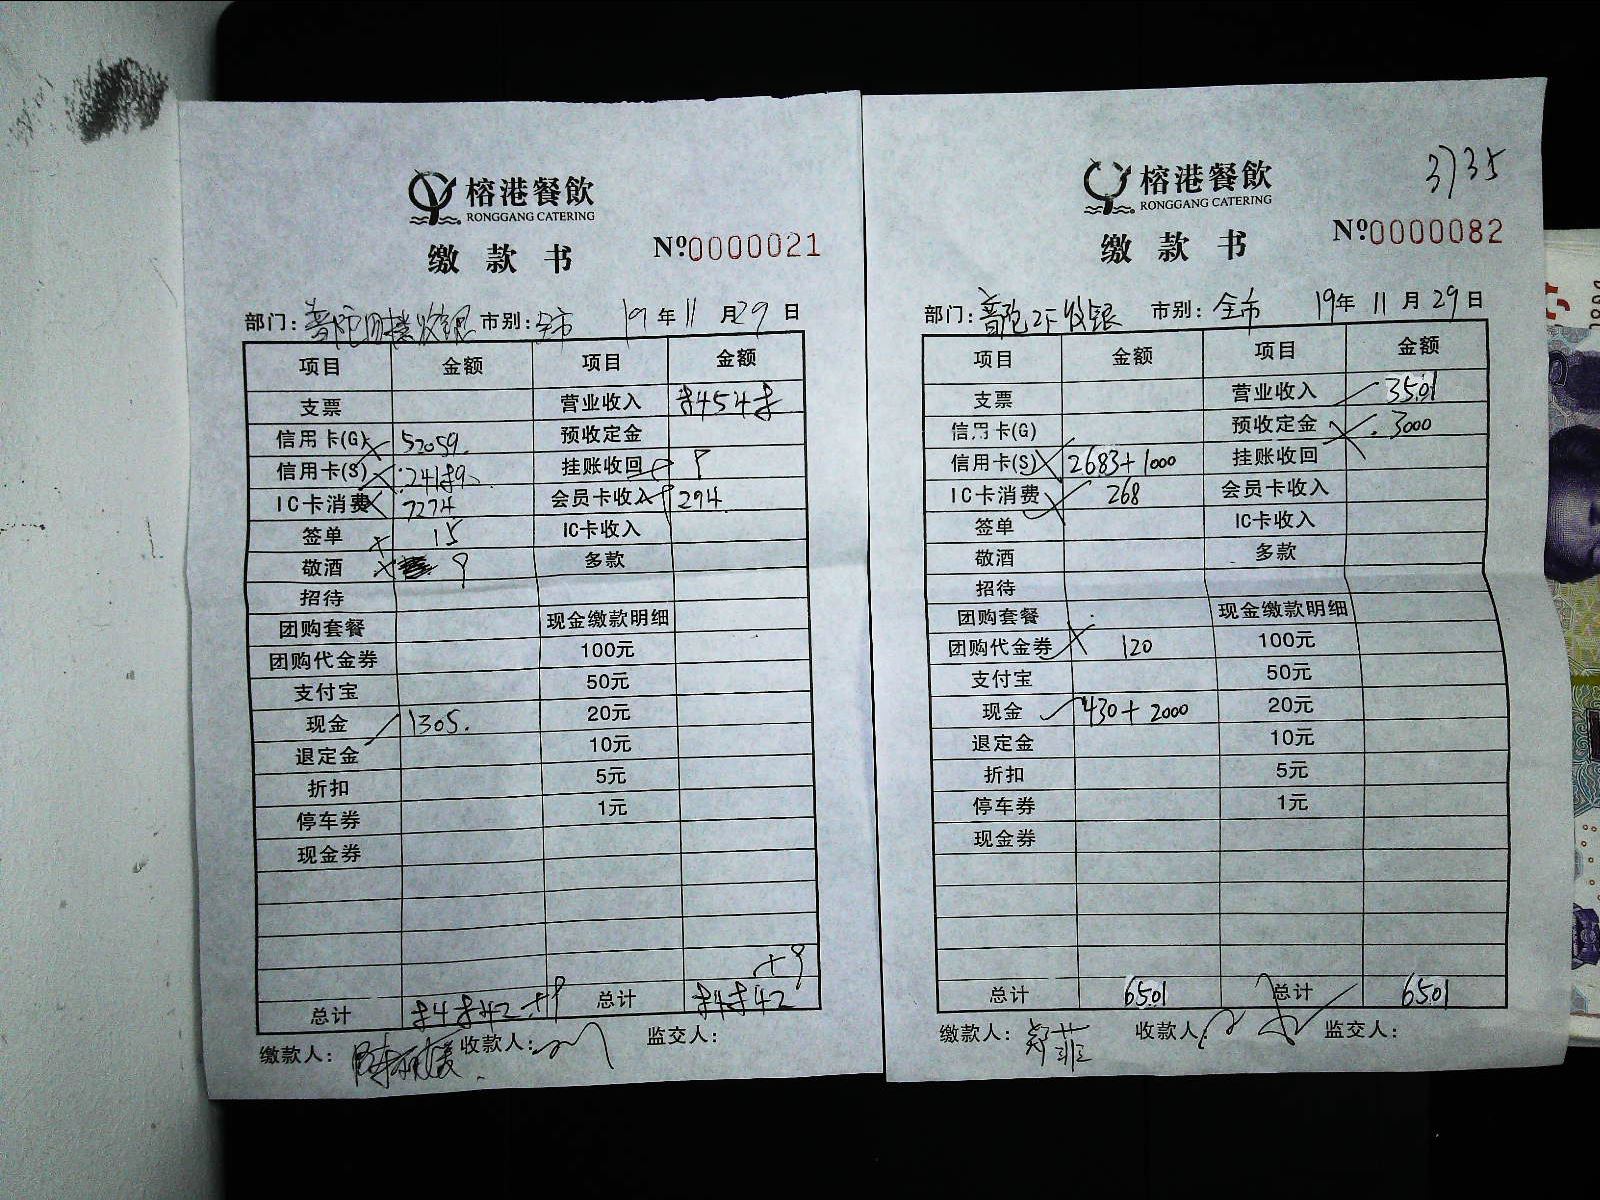 榕港餐飲
RONGGANG CATERING
缴款书
№0000021
部门: 收银 市别: 全市 19年11月29日
项目 金额 项目 金额
支票 营业收入
信用卡(G) 52059. 预收定金
信用卡(S) 挂账收回 9
IC卡消费 7274 会员卡收入 294
签单 15 IC卡收入
敬酒 9 多款
招待
团购套餐 现金缴款明细
团购代金券 100元
支付宝 50元
现金 1305. 20元
退定金 10元
折扣 5元
停车券 1元
现金券
+9
总计 总计
缴款人: 收款人: 监交人:
3735
榕港餐飲
RONGGANG CATERING
缴款书
№0000082
部门: 收银 市别: 全市 19年11月29日
项目 金额 项目 金额
支票 营业收入 3501
信用卡(G) 预收定金 3000
信用卡(S) 2683+1000 挂账收回
IC卡消费 268 会员卡收入
签单 IC卡收入
敬酒 多款
招待
团购套餐 现金缴款明细
团购代金券 120 100元
支付宝 50元
现金 430+2000 20元
退定金 10元
折扣 5元
停车券 1元
现金券
总计 6501 总计 6501
缴款人: 郑菲 收款人: 监交人: